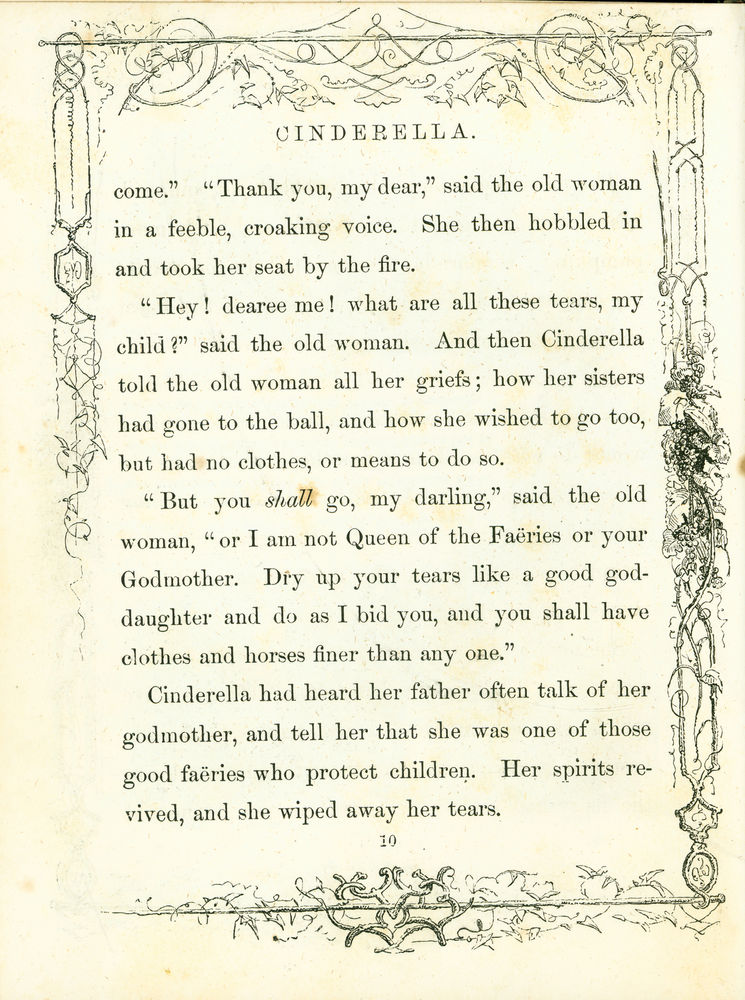 CINDERELLA.
come.” “Thank you, my dear,” said the old woman
in a feeble, croaking voice. She then hobbled in
and took her seat by the fire.
“Hey! dearee me! what are all these tears, my
child?” said the old woman. And then Cinderella
told the old woman all her griefs; how her sisters
had gone to the ball, and how she wished to go too,
but had no clothes, or means to do so.
“But you shall go, my darling,” said the old
woman, “or I am not Queen of the Faëries or your
Godmother. Dry up your tears like a good god-
daughter and do as I bid you, and you shall have
clothes and horses finer than any one.”
Cinderella had heard her father often talk of her
godmother, and tell her that she was one of those
good faëries who protect children. Her spirits re-
vived, and she wiped away her tears.
10